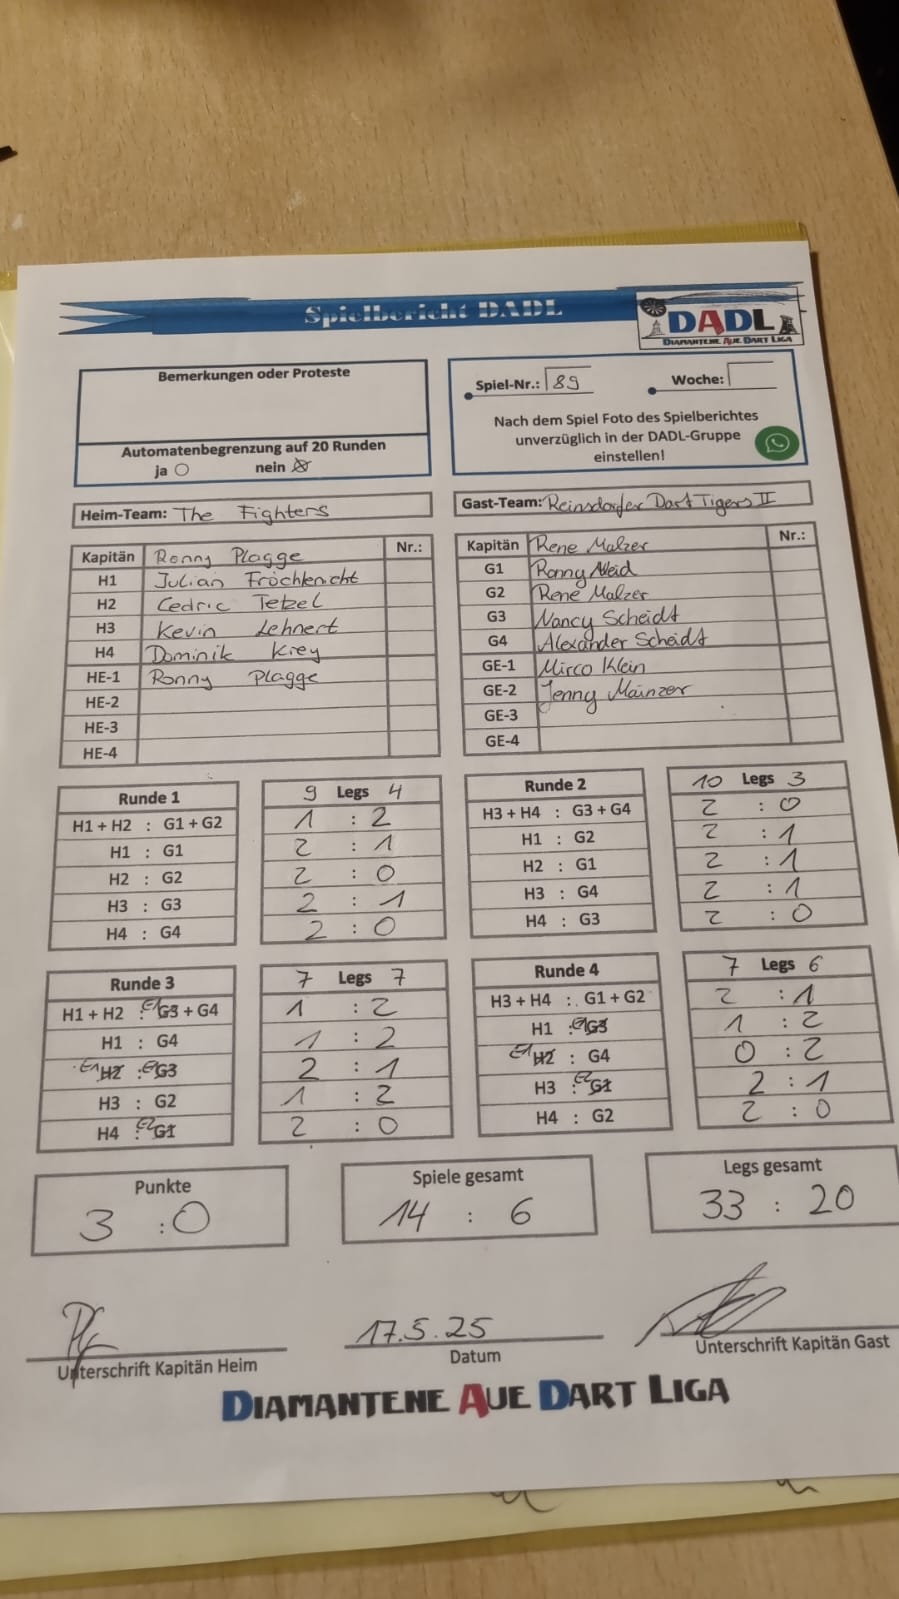 Spielbericht DADL
DADL
DIAMANTENE AUE DART LIGA
Bemerkungen oder Proteste
Automatenbegrenzung auf 20 Runden
ja nein
Spiel-Nr.: 89 Woche:
Nach dem Spiel Foto des Spielberichtes
unverzüglich in der DADL-Gruppe
einstellen!
Heim-Team: The Fighters
Gast-Team: Reinsdorfer Dart Tigers II
Kapitän Ronny Plagge Nr.:
H1 Julian Fröchtenicht
H2 Cedric Tetzel
H3 Kevin Lehnert
H4 Dominik Krey
HE-1 Ronny Plagge
HE-2
HE-3
HE-4
Kapitän Rene Malzer Nr.:
G1 Ronny Neid
G2 René Malzer
G3 Nancy Scheidt
G4 Alexander Scheidt
GE-1 Mirco Klein
GE-2 Jenny Mainzer
GE-3
GE-4
Runde 1 9 Legs 4
H1 + H2 : G1 + G2 1 : 2
H1 : G1 2 : 1
H2 : G2 2 : 0
H3 : G3 2 : 1
H4 : G4 2 : 0
Runde 2 10 Legs 3
H3 + H4 : G3 + G4 2 : 0
H1 : G2 2 : 1
H2 : G1 2 : 1
H3 : G4 2 : 1
H4 : G3 2 : 0
Runde 3 7 Legs 7
H1 + H2 : E1 G3 + G4 1 : 2
H1 : G4 1 : 2
E1 H2 : E1 G3 2 : 1
H3 : G2 1 : 2
H4 : E2 G1 2 : 0
Runde 4 7 Legs 6
H3 + H4 : G1 + G2 2 : 1
H1 : E1 G3 1 : 2
E1 H2 : G4 0 : 2
H3 : E2 G1 2 : 1
H4 : G2 2 : 0
Punkte
3 : 0
Spiele gesamt
14 : 6
Legs gesamt
33 : 20
Unterschrift Kapitän Heim
17.5.25
Datum
Unterschrift Kapitän Gast
DIAMANTENE AUE DART LIGA